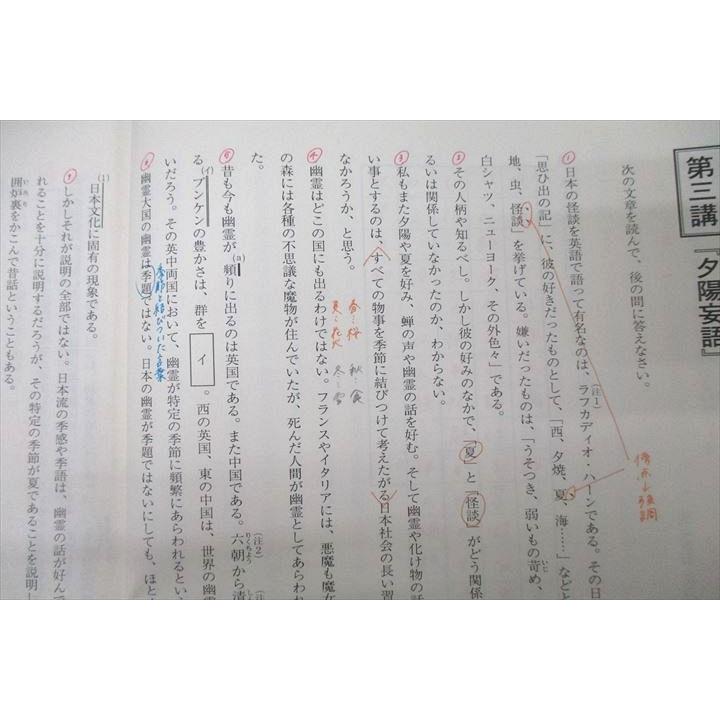 第三講 『夕陽妄語』
次の文章を読んで、後の問に答えなさい。
① 日本の怪談を英語で語って有名なのは、ラフカディオ・ハーンである。その日
(注1)
「思ひ出の記」に、彼の好きだったものとして、「西、夕焼、夏、海……」などと
地、虫、怪談」を挙げている。嫌いだったものは、「うそつき、弱いもの苛め、
いじ
白シャツ、ニューヨーク、その外色々」である。
② その人柄や知るべし。しかし彼の好みのなかで、「夏」と「怪談」がどう関係
るいは関係していなかったのか、わからない。
③ 私もまた夕陽や夏を好み、蝉の声や幽霊の話を好む。そして幽霊や化け物の話
い事とするのは、すべての物事を季節に結びつけて考えたがる日本社会の長い習
なかろうか、と思う。
春…桜
夏…花火
冬…雪
④ 幽霊はどこの国にも出るわけではない。フランスやイタリアには、悪魔も魔女
の森には各種の不思議な魔物が住んでいたが、死んだ人間が幽霊としてあらわれ
た。
⑤ 昔も今も幽霊が頻りに出るのは英国である。また中国である。六朝から清
(a)
りくちょう
(注2)
る。ブンケンの豊かさは、群を イ 。西の英国、東の中国は、世界の幽霊
(イ)
いだろう。その英中両国において、幽霊が特定の季節に頻繁にあらわれるとい
幽霊大国の幽霊は季題ではない。日本の幽霊が季題ではないにしても、ほと
季節と結びついた言葉
日本文化に固有の現象である。
(1)
しかしそれが説明の全部ではない。日本流の季感や季語は、幽霊の話が好んで
れることを十分に説明するだろうが、その特定の季節が夏であることを説明し
囲炉裏をかこんで昔話ということもある。
いろり